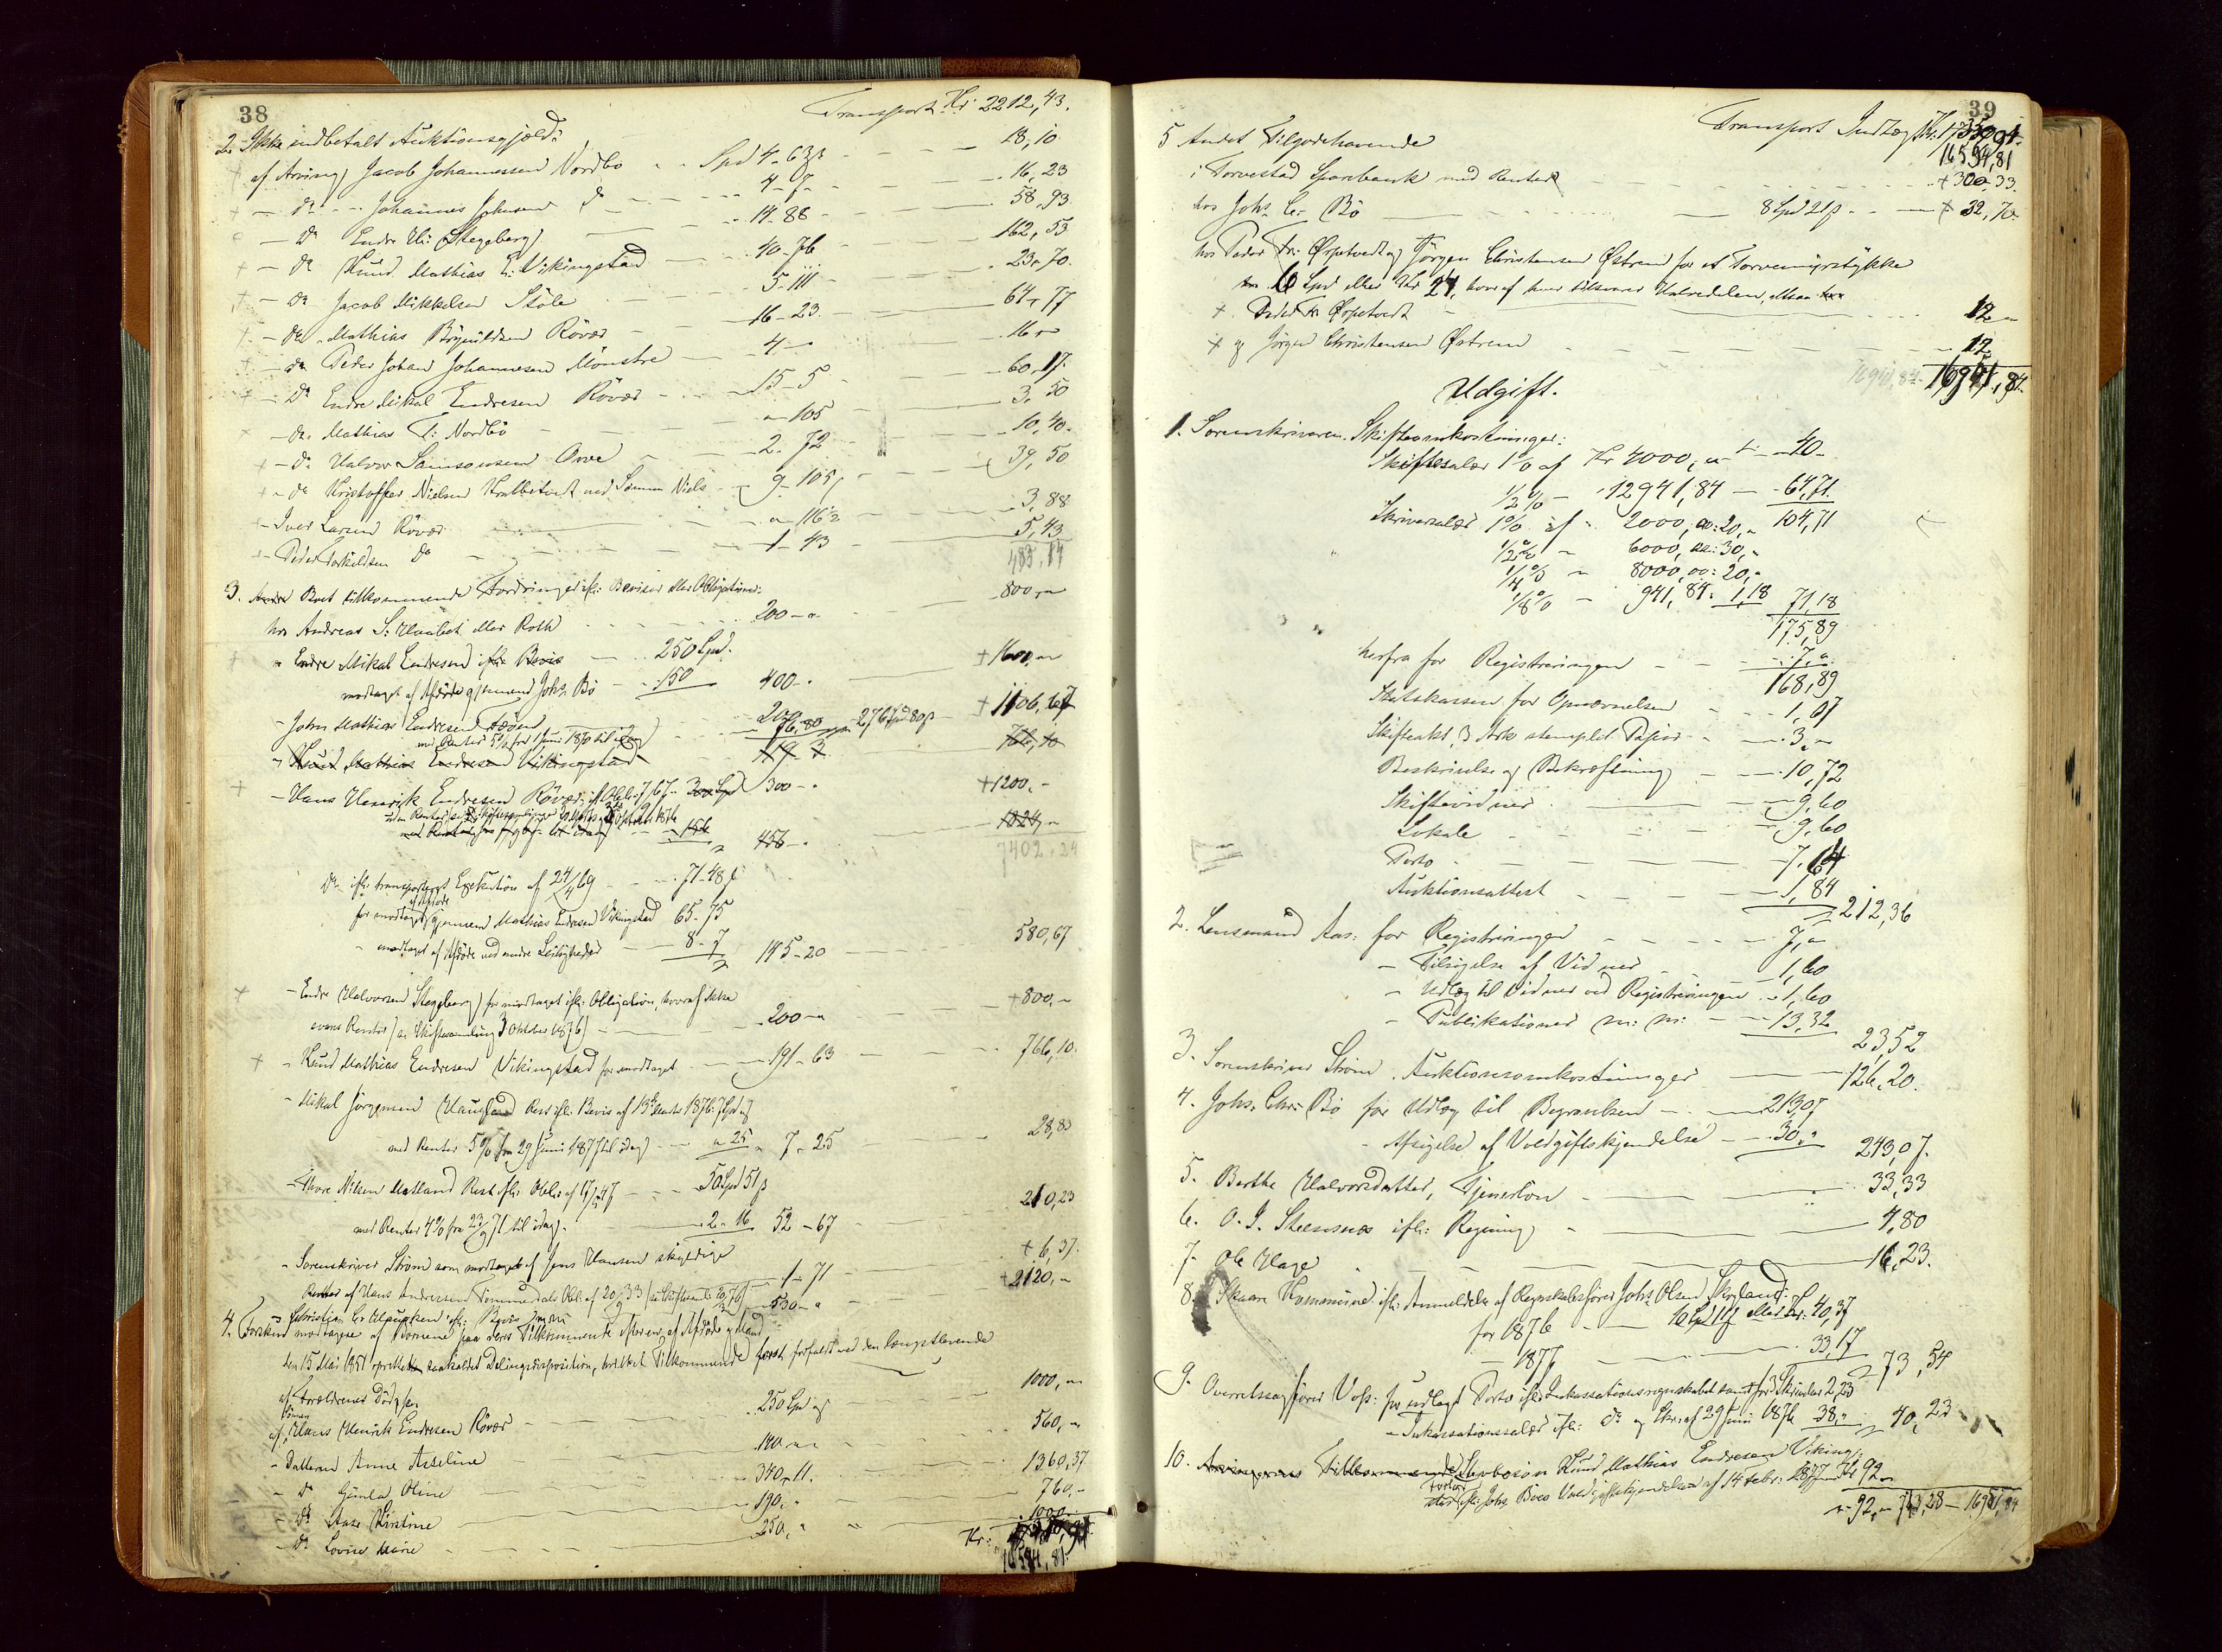 38
Transport Kr. 2212,43.
2. Ikke indbetalt Auktionsgjæld:
+ af Arving Jacob Johannessen Nordbø - - Spd 4-63 ß - - - 18,10
+ - do - Johannes Johnsen do - - - 4-7- - - - 16,23
- Do Endre H: Stegeberg) - - - 14-88 - - - 58,93
+ - do Knud Mathias E: Vikingstad - - 40-76 - - - 162,53
+ - do Jacob Mikkelsen Støle - - - 5-111 - - - 23,70.
+ - do Mathias Brynildsen Røvær - - 16-23. - - - 64,77
+ - do Peder Johan Johannesen Mønstre - - 4-" - - - 16,"
+ - Do Endre Mikal Endresen Røvær - - - 15-5 - - - 60,17.
- do. Mathias T: Nordbø - - - "-105 - - - 3,50
+ - do Halvor Samsonsen Arve - - - 2-72 - - - 10,40.
+ - do Kristoffer Nielsen ved Sønnen Niels - - 9-105 - - - 39,50
- Iver Larsen Røvær - - - "-116½ - - - 3,88
+ - Peder Torkildsen Do - - - 1-43 - - - 5,43
483,17
3. Andre Boet tilkommende Fordringer ifl: Beviser eller Obligationer:
hos Andreas S: Haabet eller Roth - - - 200-" - - - 800,"
+ " Endre Mikal Endresen ifl: Bevis - - 250 Spd.
modtaget af Afdøde gjennem Johs Bø - - 150 400-" - - - + 1600,"
- John Mathias Endresen - - - 200 276 Spd 80 ß - + 1106,67
med Renter 5% fra 1 Juni 1870 til idag) - - 76,80
" Knud Mathias Endresen Vikingstad - - - 191-3 764,10
+ - Hans Henrik Endresen Røvær, ifl Obl: 7/67 - 300 Spd 300-" - - - + 1200,-
156 456-" - - - 1824,"
7402,24
Do ifl: transporteret Exekution af 24/4 69 - - - 71-48 ß
af Afdøde
for modtaget gjennem Mathias Endresen Vikingstad 65-75
- modtaget af Afdøde ved andre Leiligheder - - 8-7 145-20 - - - 580,67
+ - Endre Halvorsen Stegeberg) for modtaget ifl: Obligation, hvoraf ikke
svares Renter (se Skiftesamling 3 Oktober 1876) - - - 200-" - - - + 800,-
+ - Knud Mathias Endresen Vikingstad for modtaget - - - 191-63 - - - 766,10.
- Mikal Jørgensen Haugland Rest ifl: Bevis af 13de Marts 1876: 7 Spd og
med Renter 5% fra 29 Juni 1877 til idag) - - "-25 " 7-25 - - - 28,83
- Thore Nilsen Matland Rest ifl: Obl: af 17/ 47 - - 50 Spd 51 ß
med Renter 4% fra 23/9 71 til idag. - - 2-16 52-67 - - - 210,23
- Sorenskriver Strøm som modtaget af Jens Hansen skyldige
Renter af Hans Andreasen Tømmerdals Obl. af 20/9 33 - - 1-71 - - - + 6,37.
- Christian Chr ifl: Bevis - - - 530-" - - - + 2120,"
4. Forskud modtagne af Børnene paa deres Tilkommende efter en af Afdøde og Mand
den 15 Mai 1851 oprettet saakaldet Delingsdisposition, hvilket Tilkommende først forfaldt ved den længstlevende
af Forældrenes Død, se.
Sønnen
af Hans Henrik Endresen Røvær - - - 250 Spd og - - - 1000,"
- Datteren Anne Asseline - - - 140-" - - - 560,"
- do Gunla Oline - - - 340-11. - - - 1360,37
- Do Aase Kirstine - - - 190," - - - 760,-
- Do Lovise Marie - - - 250," " - - - 1000.
Kr:
16594,81.
39
Transport Indtægt Kr. 17359,91
16594,81
5 Andet Tilgodehavende
i Torvestad Sparebank med Renter - - - + 300,33.
hos Johs Chr. Bø - - - 8 Spd 21 ß - - + 32,70
hos Peder Tr: Ørpetvedt og Jørgen Christensen Østrem for et Torvemyrstykke
6 Spd eller Kr 24, hvoraf hver tilsvarer Halvdelen, altsaa
+ Peder Tr Ørpetvedt - - - 12 "
+ og Jørgen Christensen Østrem - - - 12
16941,84 16941,84.
Udgift.
1. Sorenskriveren. Skifteomkostninger:
Skiftesalær 1% af Kr 4000, " - 40-
½ % - 12941,84 - - 64,71
104,71
Skriversalær 1% af " 2000, oo: 20, "
½ % " 6000, oo: 30, "
¼ % " 8000, oo: 20, "
⅛ % - 941,84: 1,18 71,18
175,89
herfra for Registreringen - - - 7,"
168,89
Statskassen for Opnævnelsen - - - 1,67
Skifteakt, 3 Ark stemplet Papir - - 3,"
Beskrivelse og Bekræftning - - - 10,72
Skiftevidner - - - 9,60
Lokale - - - 9,60
Porto - - - 7,64
Auktionsattest - - - 1,84
212,36
2. Lensmand Aas: for Registreringen - - - 7,"
- Tilsigelse af Vidner - - 1,60
- Udlæg til Vidner ved Registreringen - 1,60
- Publikationer m: m: - - 13,32
23,52
3. Sorenskriver Strøm. Auktionsomkostninger - - - 126,20.
4. Johs. Chr. Bø for Udlæg til Begravelsen - - 213,07
- Afsigelse af Voldgiftskjendelse - - 30," 243,07.
5. Berthe Halvorsdatter, Tjenerløn - - - 33,33
6. O. J. Steensnæs ifl: Regning - - - 4,80
7. Ole Hage - - - 16,23.
8. Skaare Kommune ifl: Anmeldelse af Regnskabsfører Johs Olsen Skyland:
for 1876 - - - 10 Spd 11 ß eller Kr: 40,37
- 1877 - - - 33,17
73,54
9. Overretssagfører Voss: for udlagt Porto ifl: Inkassationsregnskabet samt for 2,23
- Inkassationssalær ifl: do og Skr: af 29 Juni 1876 38," 40,23
10. Arvingernes Tilkommende Stervboson Knud Mathias Endresen Vikingst:
ifl: Johs Bøes Voldgiftskjendelse af 14 Febr: 1877 Kr 92 "
" 92," 743,28 - 16941,84